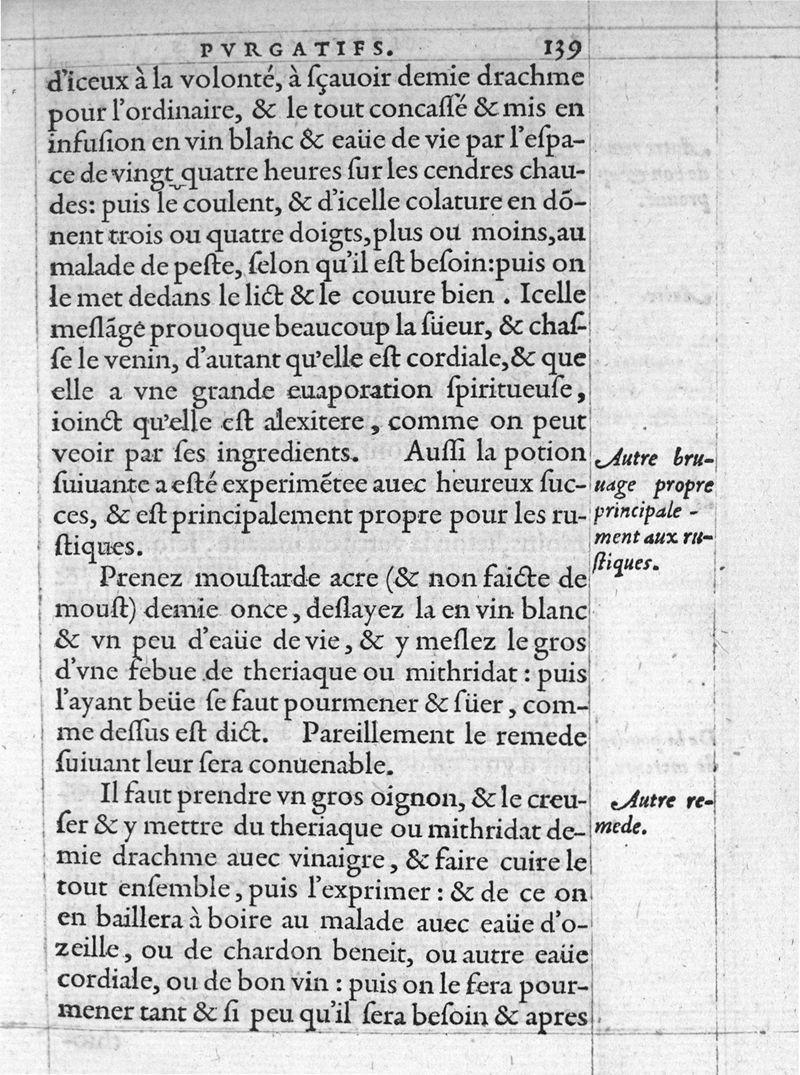 PVRGATIFS. 139
d'iceux à la volonté, à ſçauoir demie drachme
pour l'ordinaire, & le tout concaſſé & mis en
infuſion en vin blanc & eaüe de vie par l'eſpa-
ce de vingt quatre heures ſur les cendres chau-
des: puis le coulent, & d'icelle colature en dō-
nent trois ou quatre doigts, plus ou moins, au
malade de peſte, ſelon qu'il eſt beſoin: puis on
le met dedans le lict & le couure bien. Icelle
meſlãge prouoque beaucoup la ſüeur, & chaſ-
ſe le venin, d'autant qu'elle eſt cordiale, & que
elle a vne grande euaporation ſpiritueuſe,
ioinct qu'elle eſt alexitere, comme on peut
veoir par ſes ingredients. Auſſi la potion
ſuiuante a eſté experimētee auec heureux ſuc-
ces, & eſt principalement propre pour les ru-
ſtiques.
Autre bru-
uage propre
principale-
ment aux ru-
ſtiques.
Prenez mouſtarde acre (& non faicte de
mouſt) demie once, deſlayez la en vin blanc
& vn peu d'eaüe de vie, & y meſlez le gros
d'vne febue de theriaque ou mithridat: puis
l'ayant beüe ſe faut pourmener & ſüer, com-
me deſſus eſt dict. Pareillement le remede
ſuiuant leur ſera conuenable.
Il faut prendre vn gros oignon, & le creu-
ſer & y mettre du theriaque ou mithridat de-
mie drachme auec vinaigre, & faire cuire le
tout enſemble, puis l'exprimer: & de ce on
en baillera à boire au malade auec eaüe d'o-
zeille, ou de chardon beneit, ou autre eaüe
cordiale, ou de bon vin: puis on le fera pour-
mener tant & ſi peu qu'il ſera beſoin & apres
Autre re-
mede.